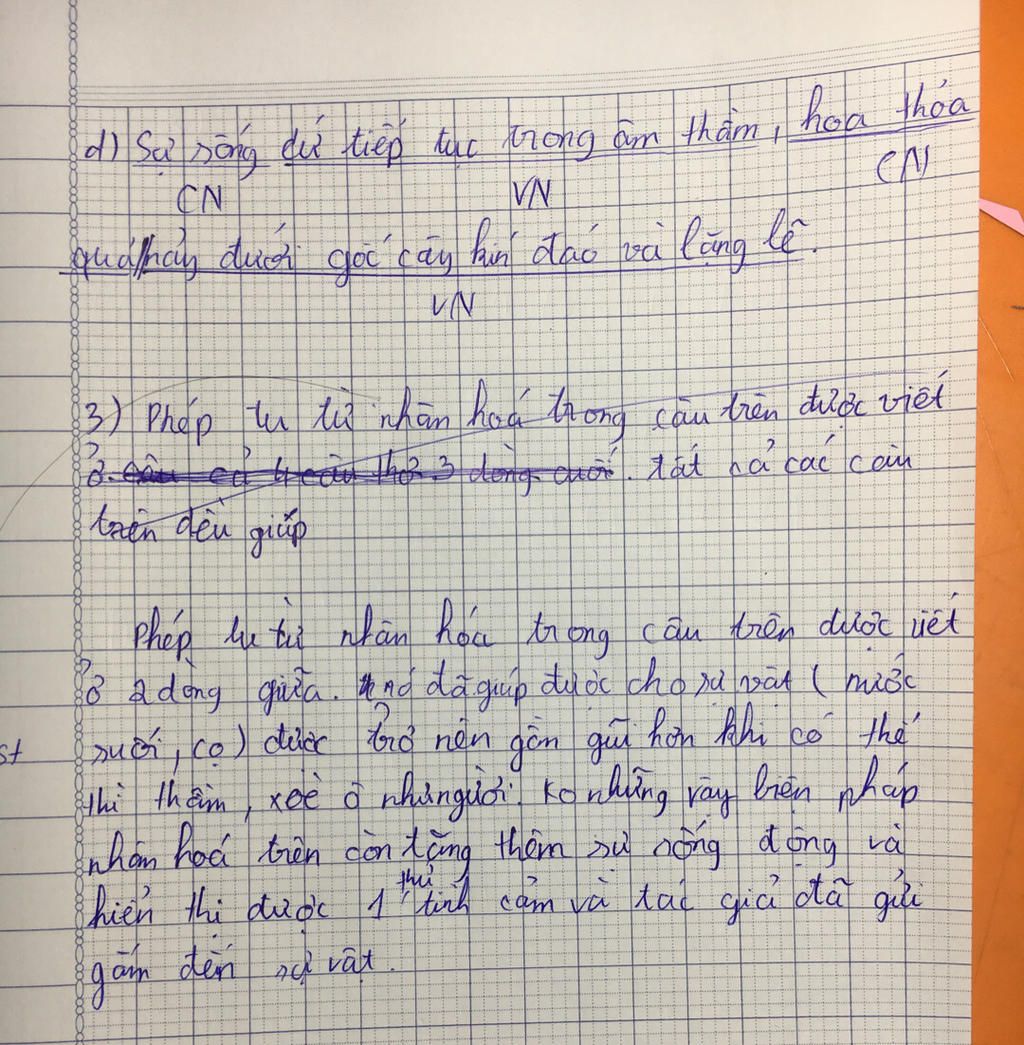 d) Sự sống cứ tiếp tục trong âm thầm, hoa thỏa
CN VN CN
quả nảy dưới gốc cây kín đáo và lặng lẽ.
VN
3) Phép tu từ nhân hoá trong câu trên được viết
ở câu cả 4 câu thơ 3 dòng cuối. tất cả các câu
trên đều giúp
Phép tu từ nhân hóa trong câu trên được viết
ở 2 dòng giữa. nó đã giúp được cho sự vật ( nước
suối, cọ) được trở nên gần gũi hơn khi có thể
st
thì thầm, xoè ô như người. Ko những vậy biện pháp
nhân hoá trên còn tăng thêm sự sống động và
hiển thị được 1 thứ tình cảm và tác giả đã gửi
gắm đến sự vật.